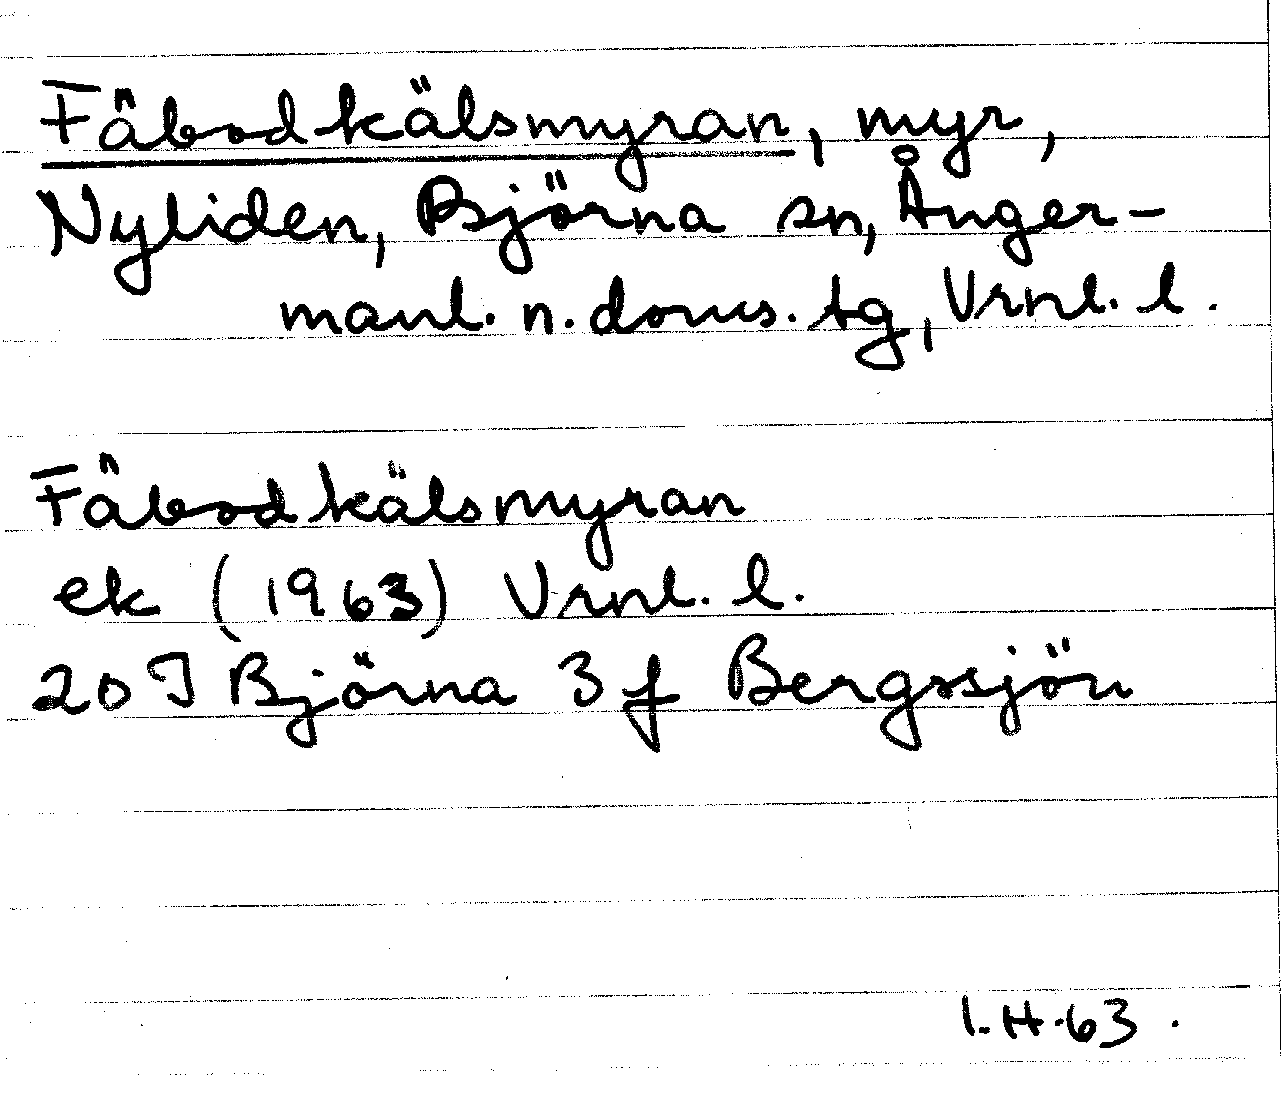 Fäbodkälsmyran, myr,
Nyliden, Björna sn, Ånger-
manl. n. doms. tg, Vrnl. l.
Fäbodkälsmyran
ek (1963) Vrnl. l.
20 I Björna 3 f Bergssjön
I.H.63.